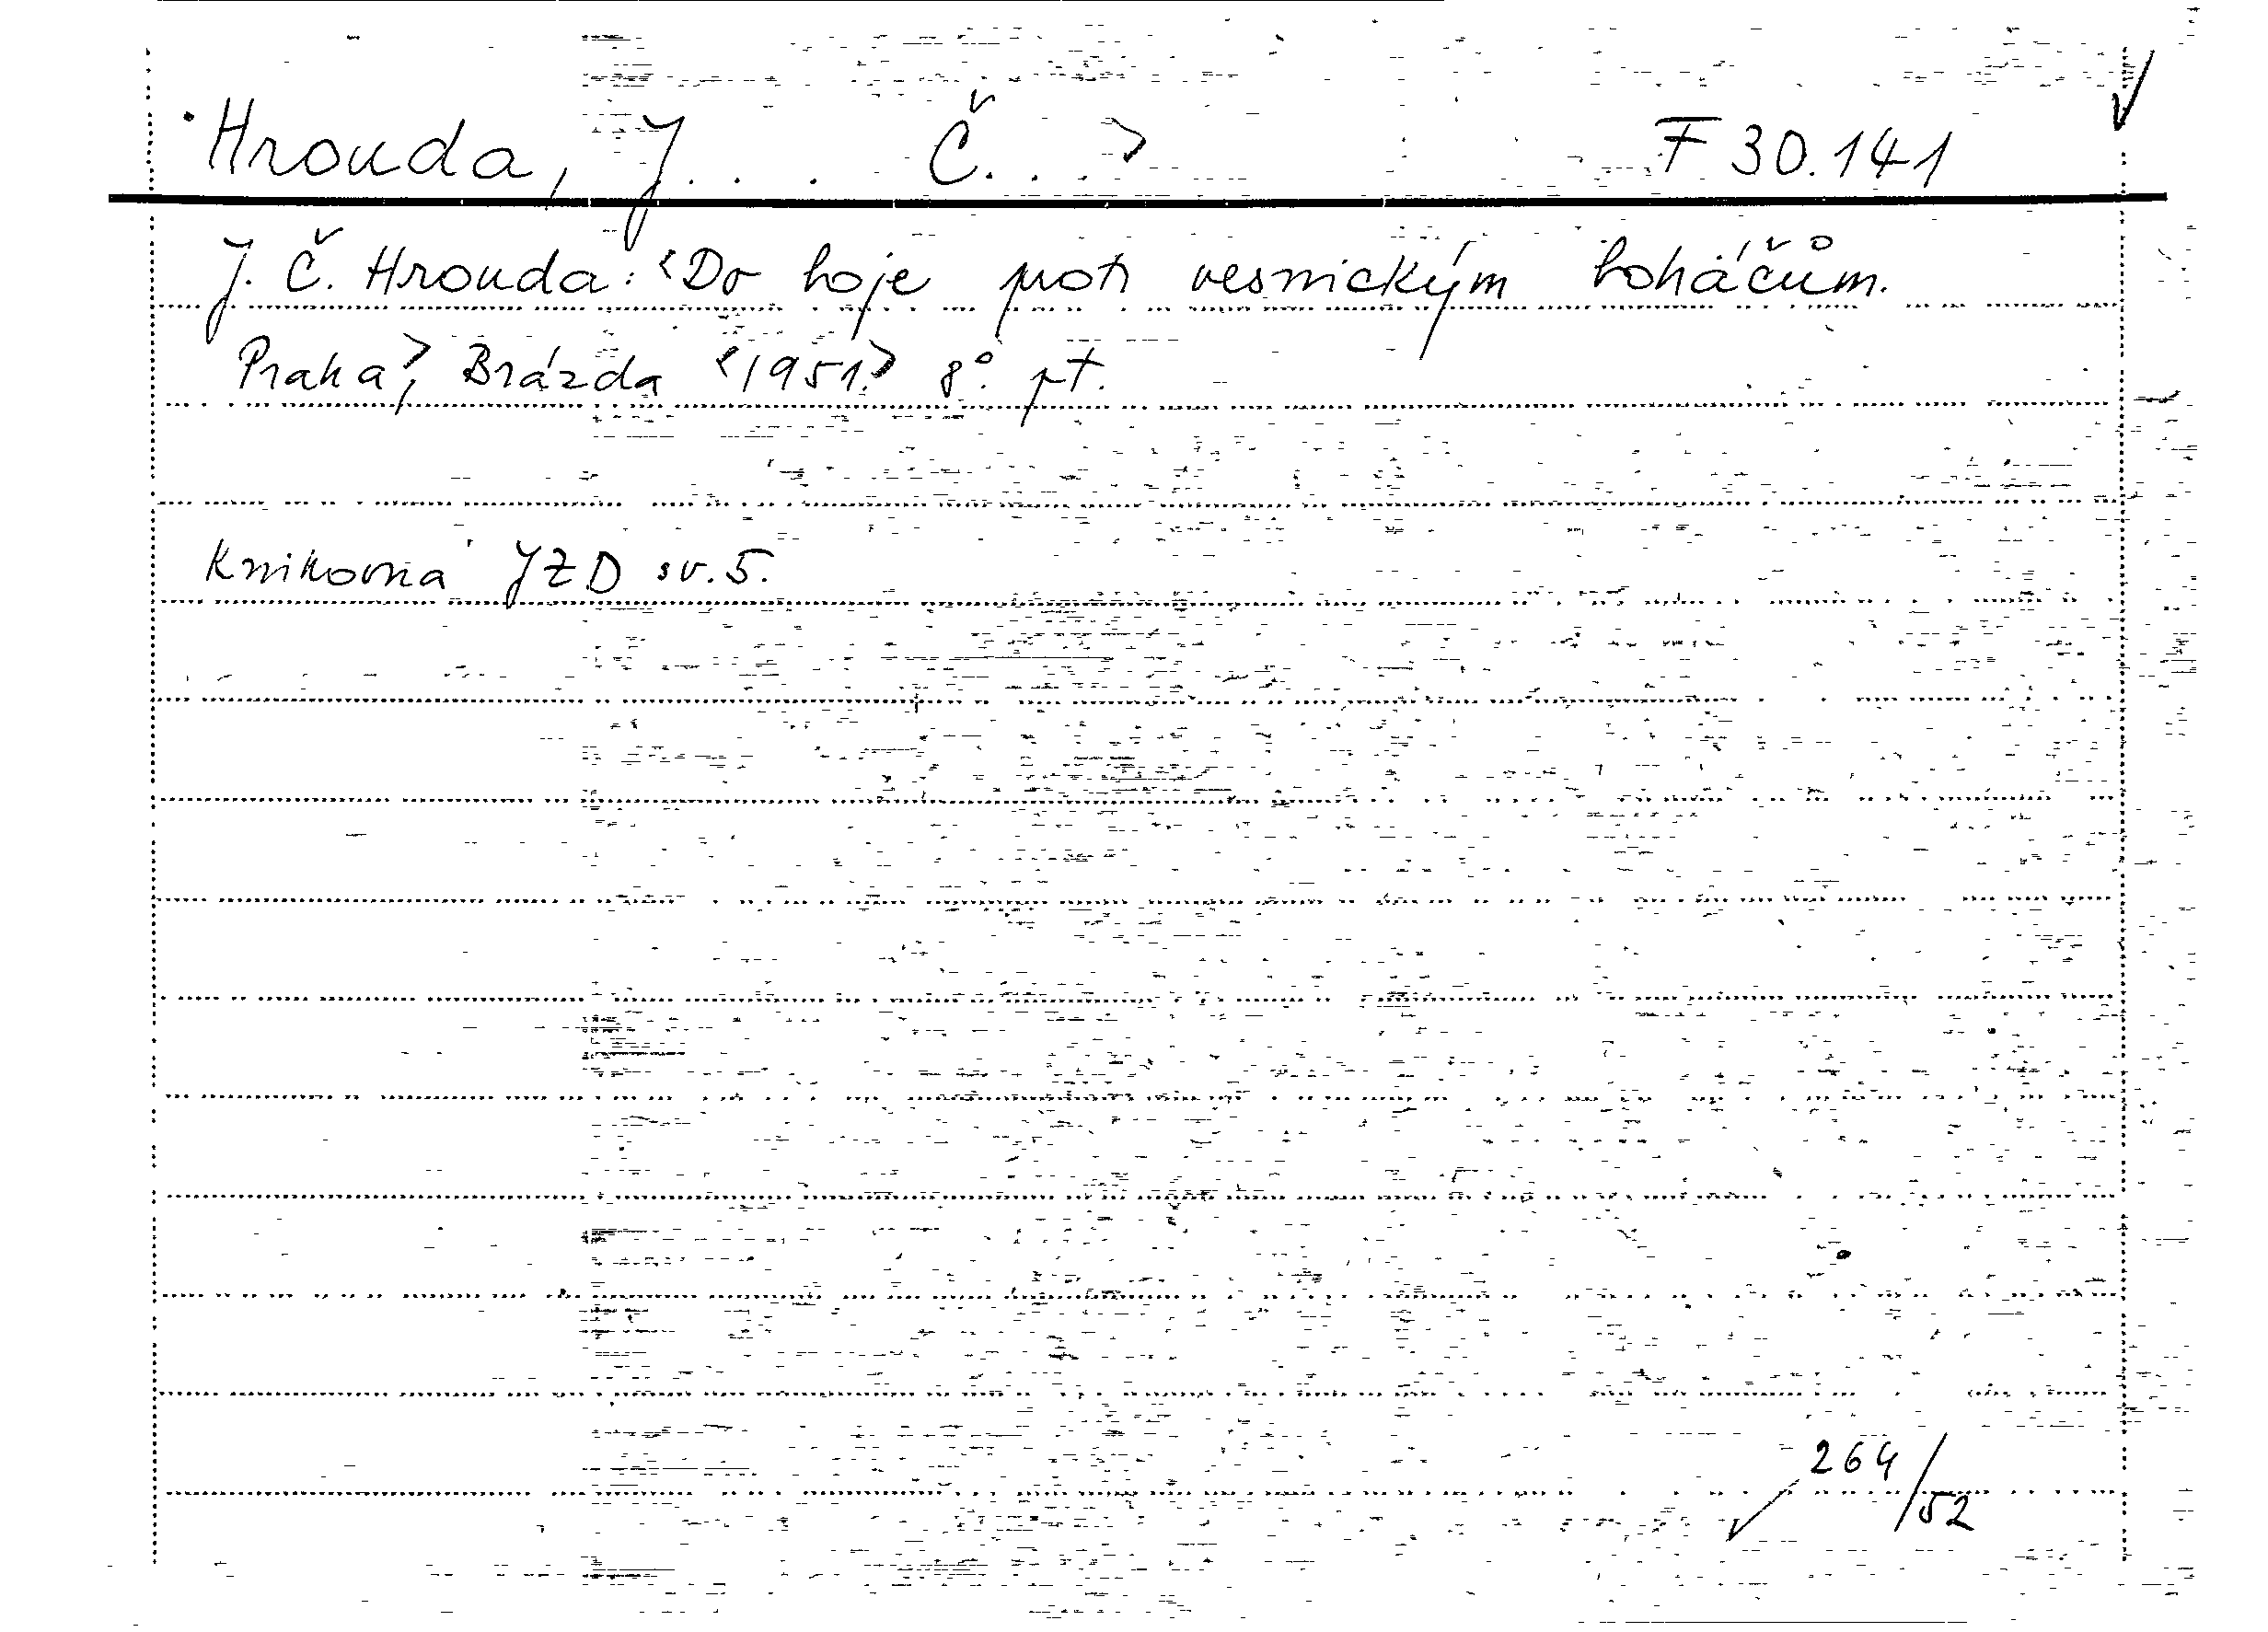 Hrouda, J... Č...> F 30.141
J. Č. Hrouda: <Do boje proti vesnickým boháčům.
Praha>, Brázda <1951.> 8° pt.
Knihovna JZD sv. 5.
264/52